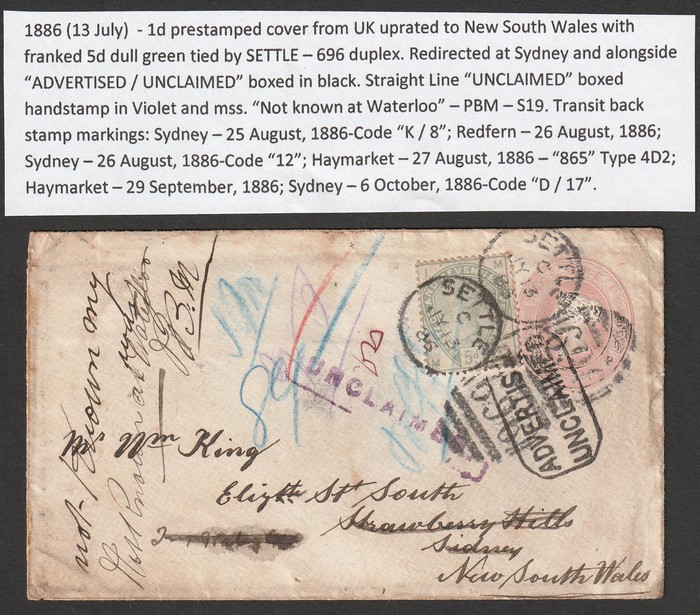 1886 (13 July)  - 1d prestamped cover from UK uprated to New South Wales with
franked 5d dull green tied by SETTLE – 696 duplex. Redirected at Sydney and alongside
“ADVERTISED / UNCLAIMED” boxed in black. Straight Line “UNCLAIMED” boxed
handstamp in Violet and mss. “Not known at Waterloo” – PBM – S19. Transit back
stamp markings: Sydney – 25 August, 1886-Code “K / 8”; Redfern – 26 August, 1886;
Sydney – 26 August, 1886-Code “12”; Haymarket – 27 August, 1886 – “865” Type 4D2;
Haymarket – 29 September, 1886; Sydney – 6 October, 1886-Code “D / 17”.
not Known my
Not Known at Waterloo
PBM
SETTLE
C
SETTLE
C
5d
UNCLAIMED
ADVERTISED
UNCLAIMED
Mr Wm King
Elizth St South
Strawberry Hills
Sidney
New South Wales